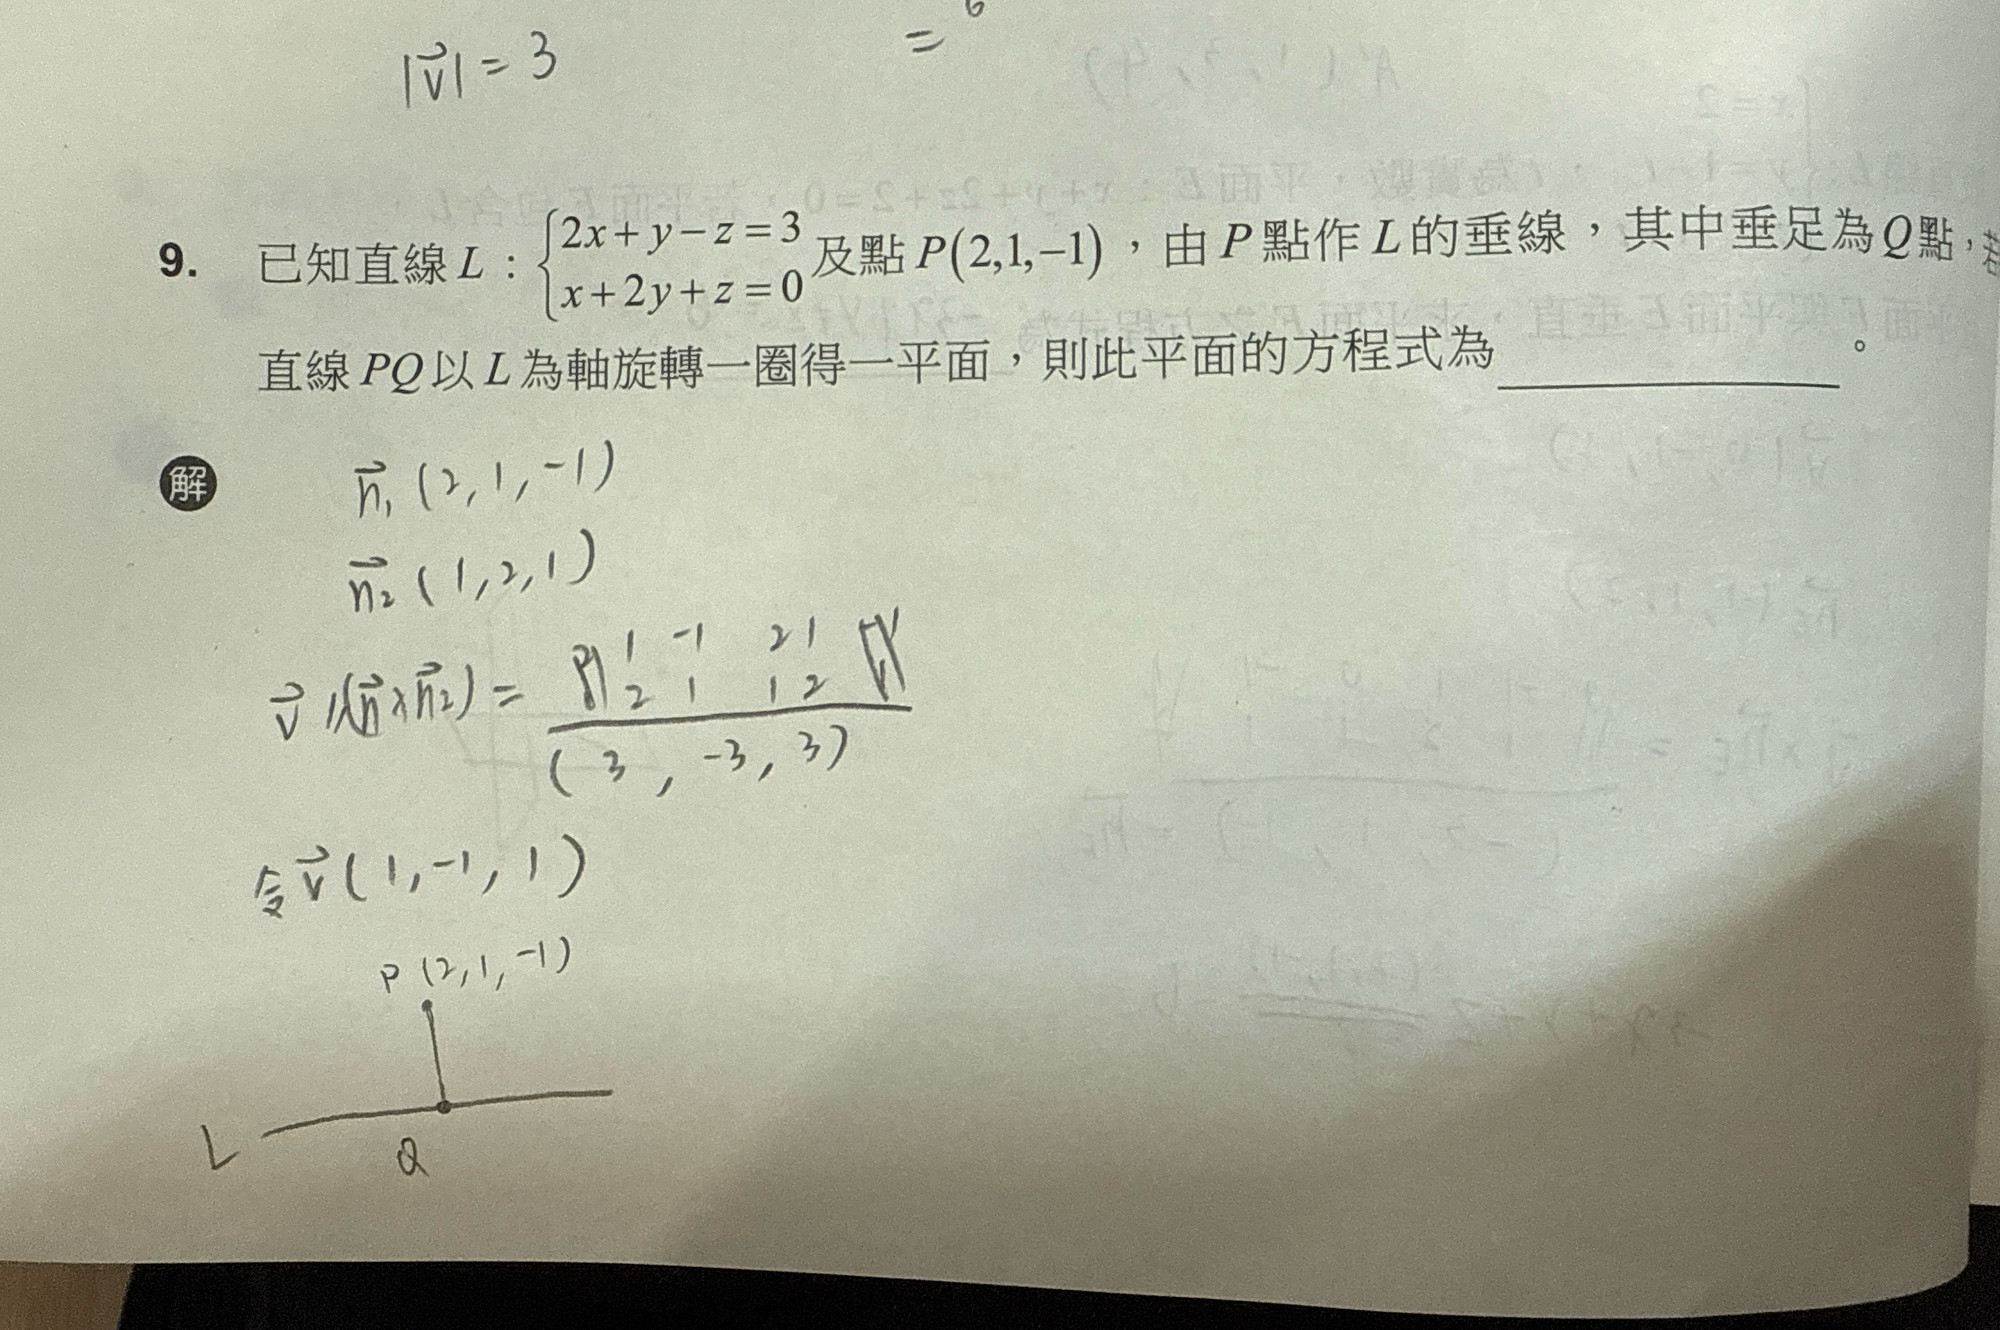 |v⃗| = 3
= 6
9. 已知直線 L：{2x+y−z=3
x+2y+z=0 及點 P(2,1,−1)，由 P 點作 L 的垂線，其中垂足為 Q 點，若
直線 PQ 以 L 為軸旋轉一圈得一平面，則此平面的方程式為＿＿＿＿＿＿。
解
n⃗₁ (2, 1, -1)
n⃗₂ (1, 2, 1)
1 -1 2 1
v⃗ // (n⃗ × n⃗₂) =
2 1 1 2
(3, -3, 3)
令 v⃗ (1, -1, 1)
P (2, 1, -1)
L
Q